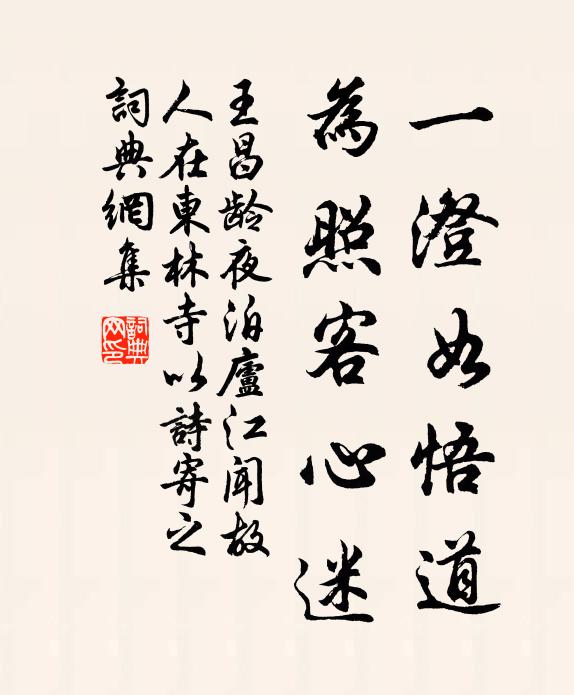 一澄如悟道
為照客心迷
王昌齡夜泊廬江聞故
人在東林寺以詩寄之
詞典網集
詞典
网印